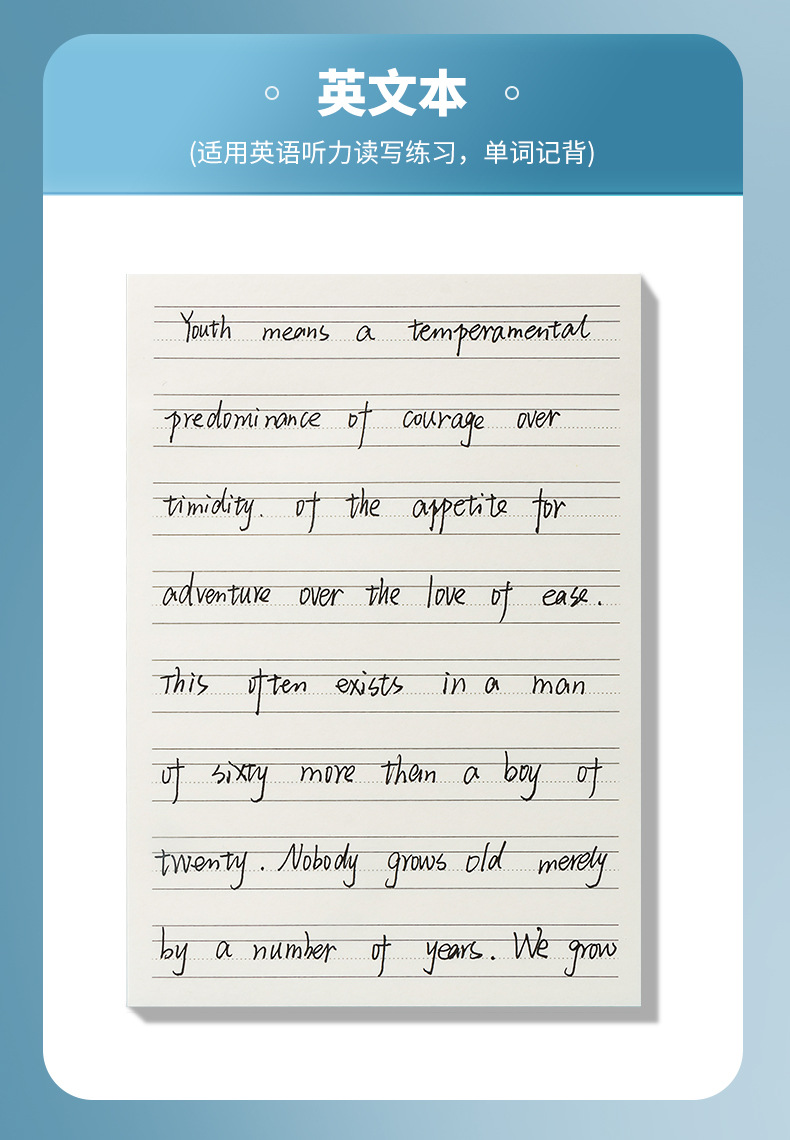 英文本
(适用英语听力读写练习，单词记背)
Youth means a temperamental
predominance of courage over
timidity. of the appetite for
adventure over the love of ease.
This often exists in a man
of sixty more than a boy of
twenty. Nobody grows old merely
by a number of years. We grow